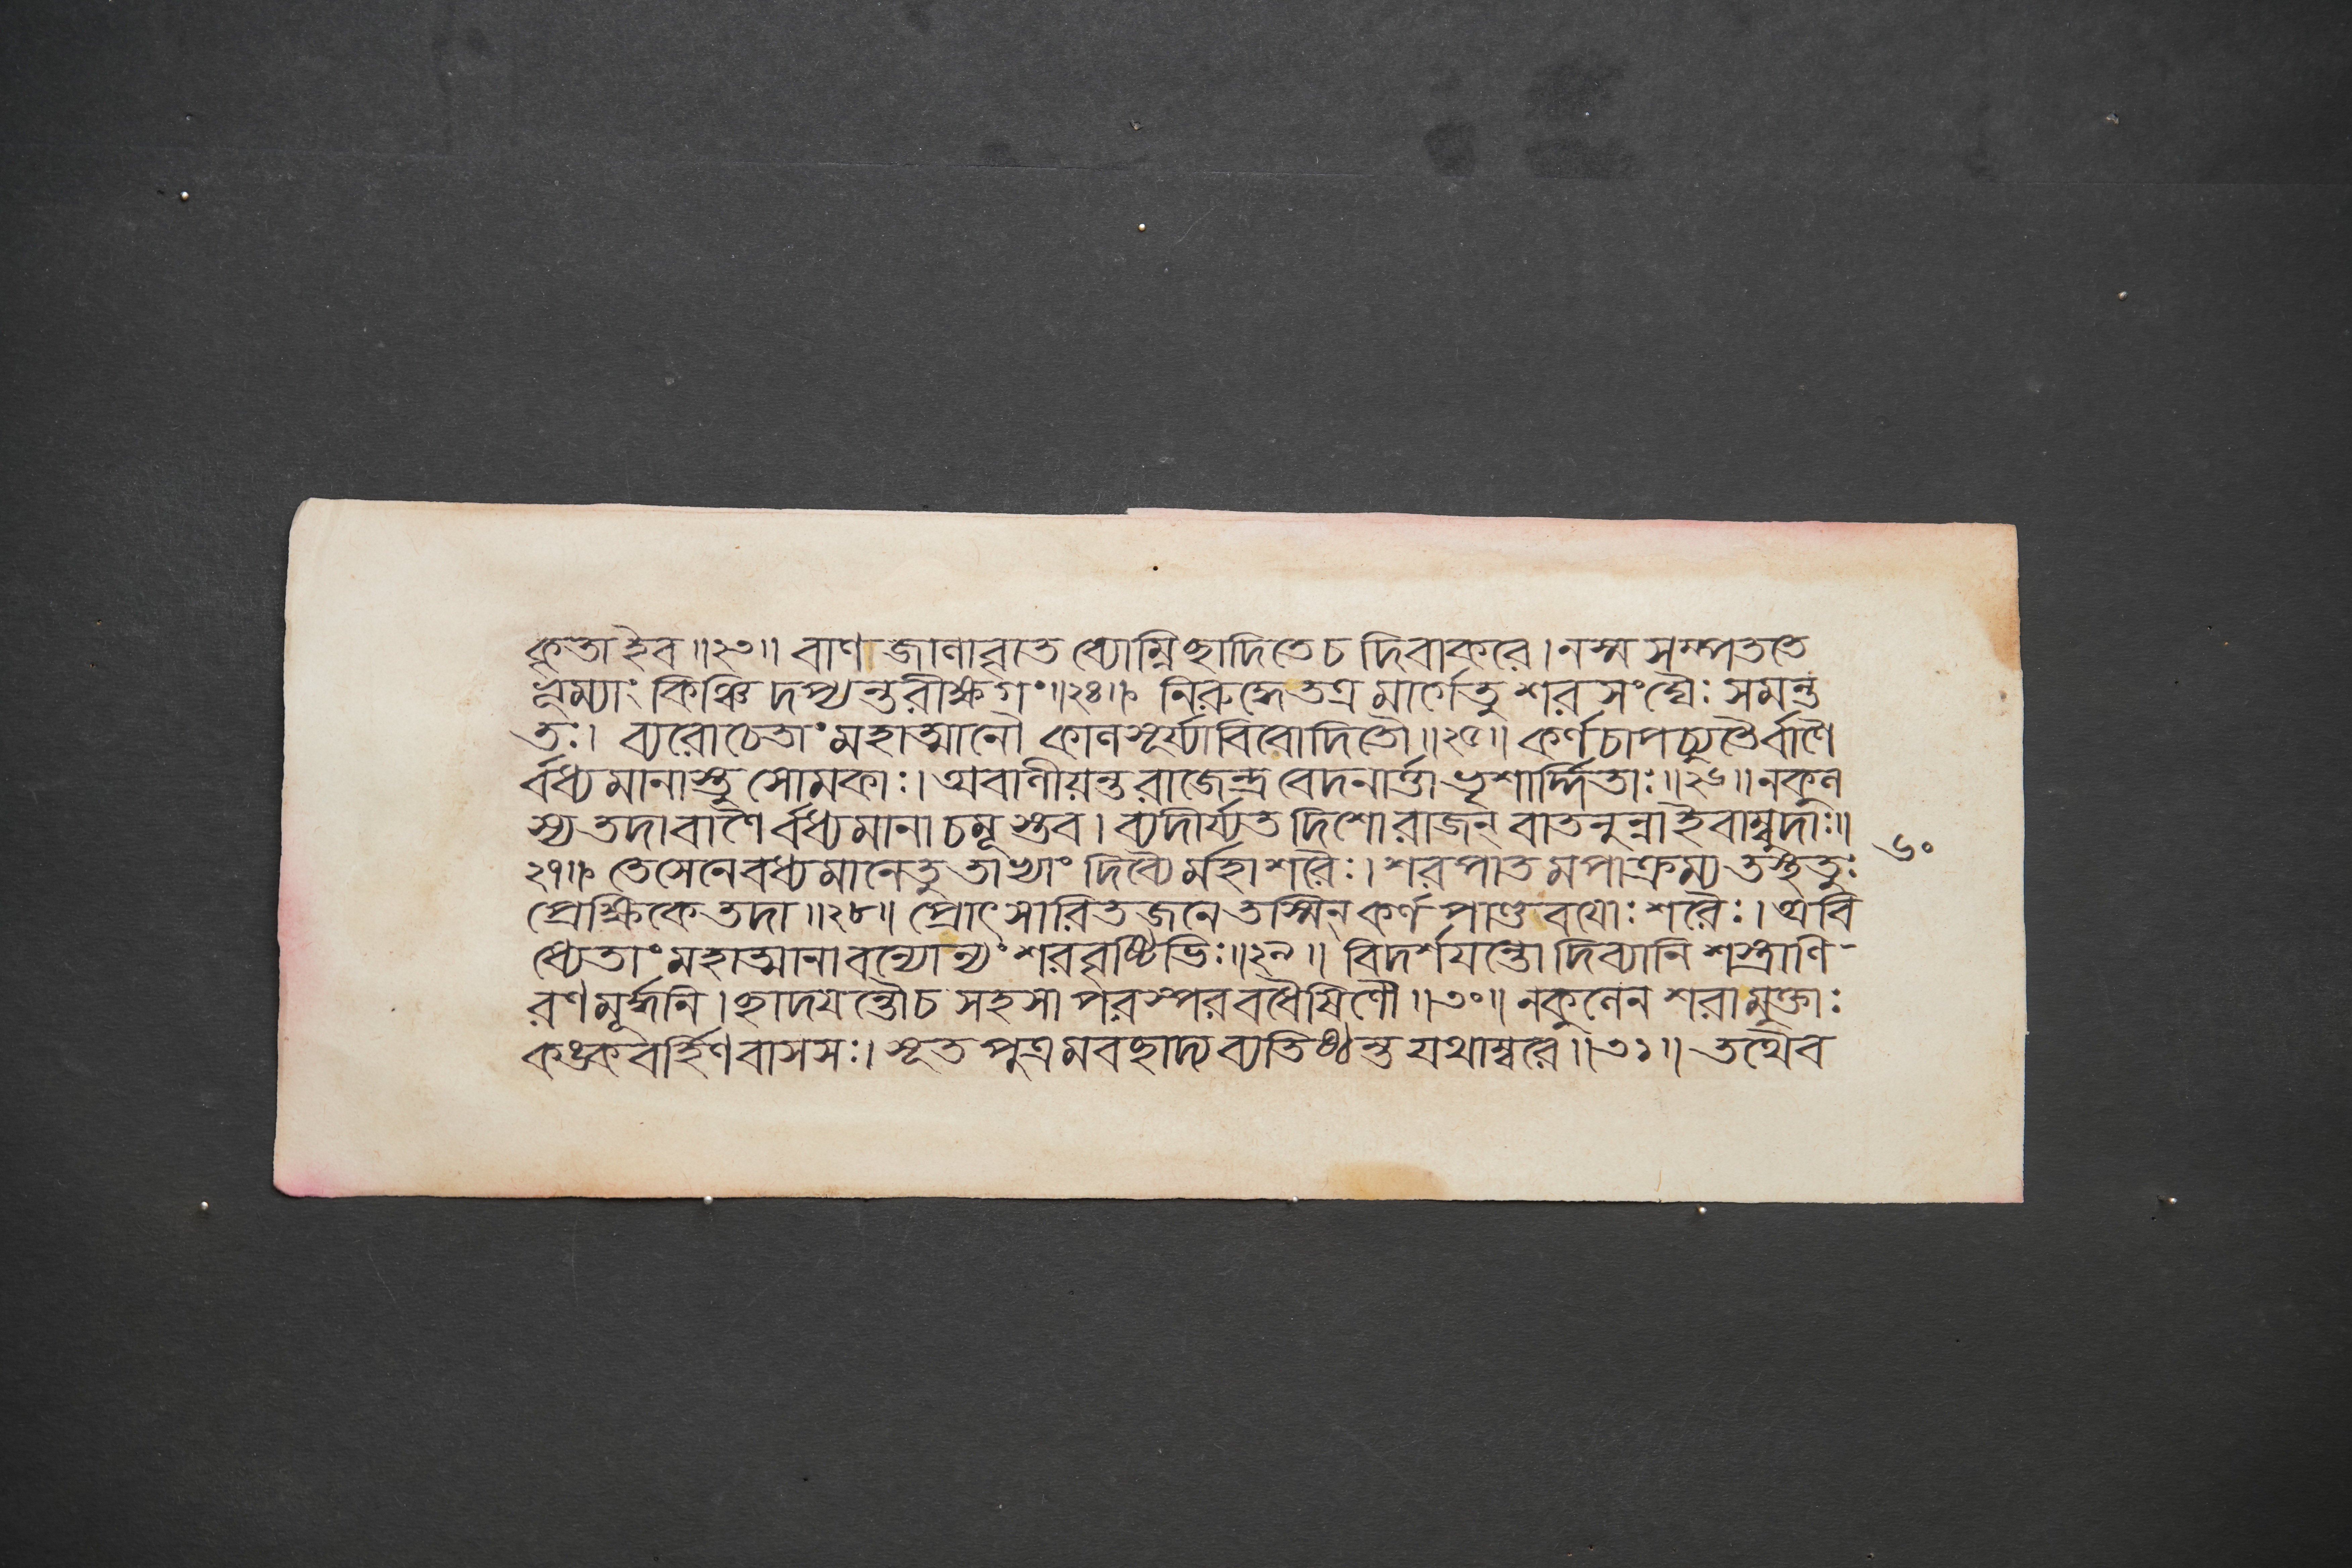 কৃতা ইব॥২৩॥ বাণজালাবৃতে ব্যোম্নি ছাদিতে চ দিবাকরে। ন স্ম সম্পততে
ভূম্যাং কিঞ্চিদপ্যন্তরীক্ষগং॥২৪॥ নিরুদ্ধে তত্র মার্গে তু শরসংঘৈঃ সমন্ত
তঃ। ব্যরোচেতাং মহাত্মানৌ কালসূর্য্যাবিবোদিতৌ॥২৫॥ কর্ণচাপচ্যুতৈর্বাণৈ
র্বধ্যমানাস্তু সোমকাঃ। অবালীয়ন্ত রাজেন্দ্র বেদনার্ত্তা ভৃশার্দ্দিতাঃ॥২৬॥ নকুল
স্য তদা বাণৈর্বধ্যমানা চমূস্তব। ব্যদীর্য্যত দিশো রাজন্ বাতনুন্না ইবাম্বুদাঃ॥
২৭॥ তে সেনে বধ্যমানে তু তাভ্যাং দিব্যৈর্মহাশরৈঃ। শরপাতমপাক্রম্য তস্থতুঃ
৬০
প্রেক্ষিকে তদা॥২৮॥ প্রোৎসারিতজনে তস্মিন্ কর্ণপাণ্ডবয়োঃ শরৈঃ। অবি
ধ্যেতাং মহাত্মানাবন্যোন্যং শরবৃষ্টিভিঃ॥২৯॥ বিদর্শয়ন্তো দিব্যানি শস্ত্রাণি
রণমূর্দ্ধনি। ছাদয়ন্তৌ চ সহসা পরস্পরবধৈষিণৌ॥৩০॥ নকুলেন শরা মুক্তাঃ
কঙ্কবর্হিণবাসসঃ। সূতপুত্রমবছাদ্য ব্যতিষ্ঠন্ত যথাম্বরে॥৩১॥ তথৈব